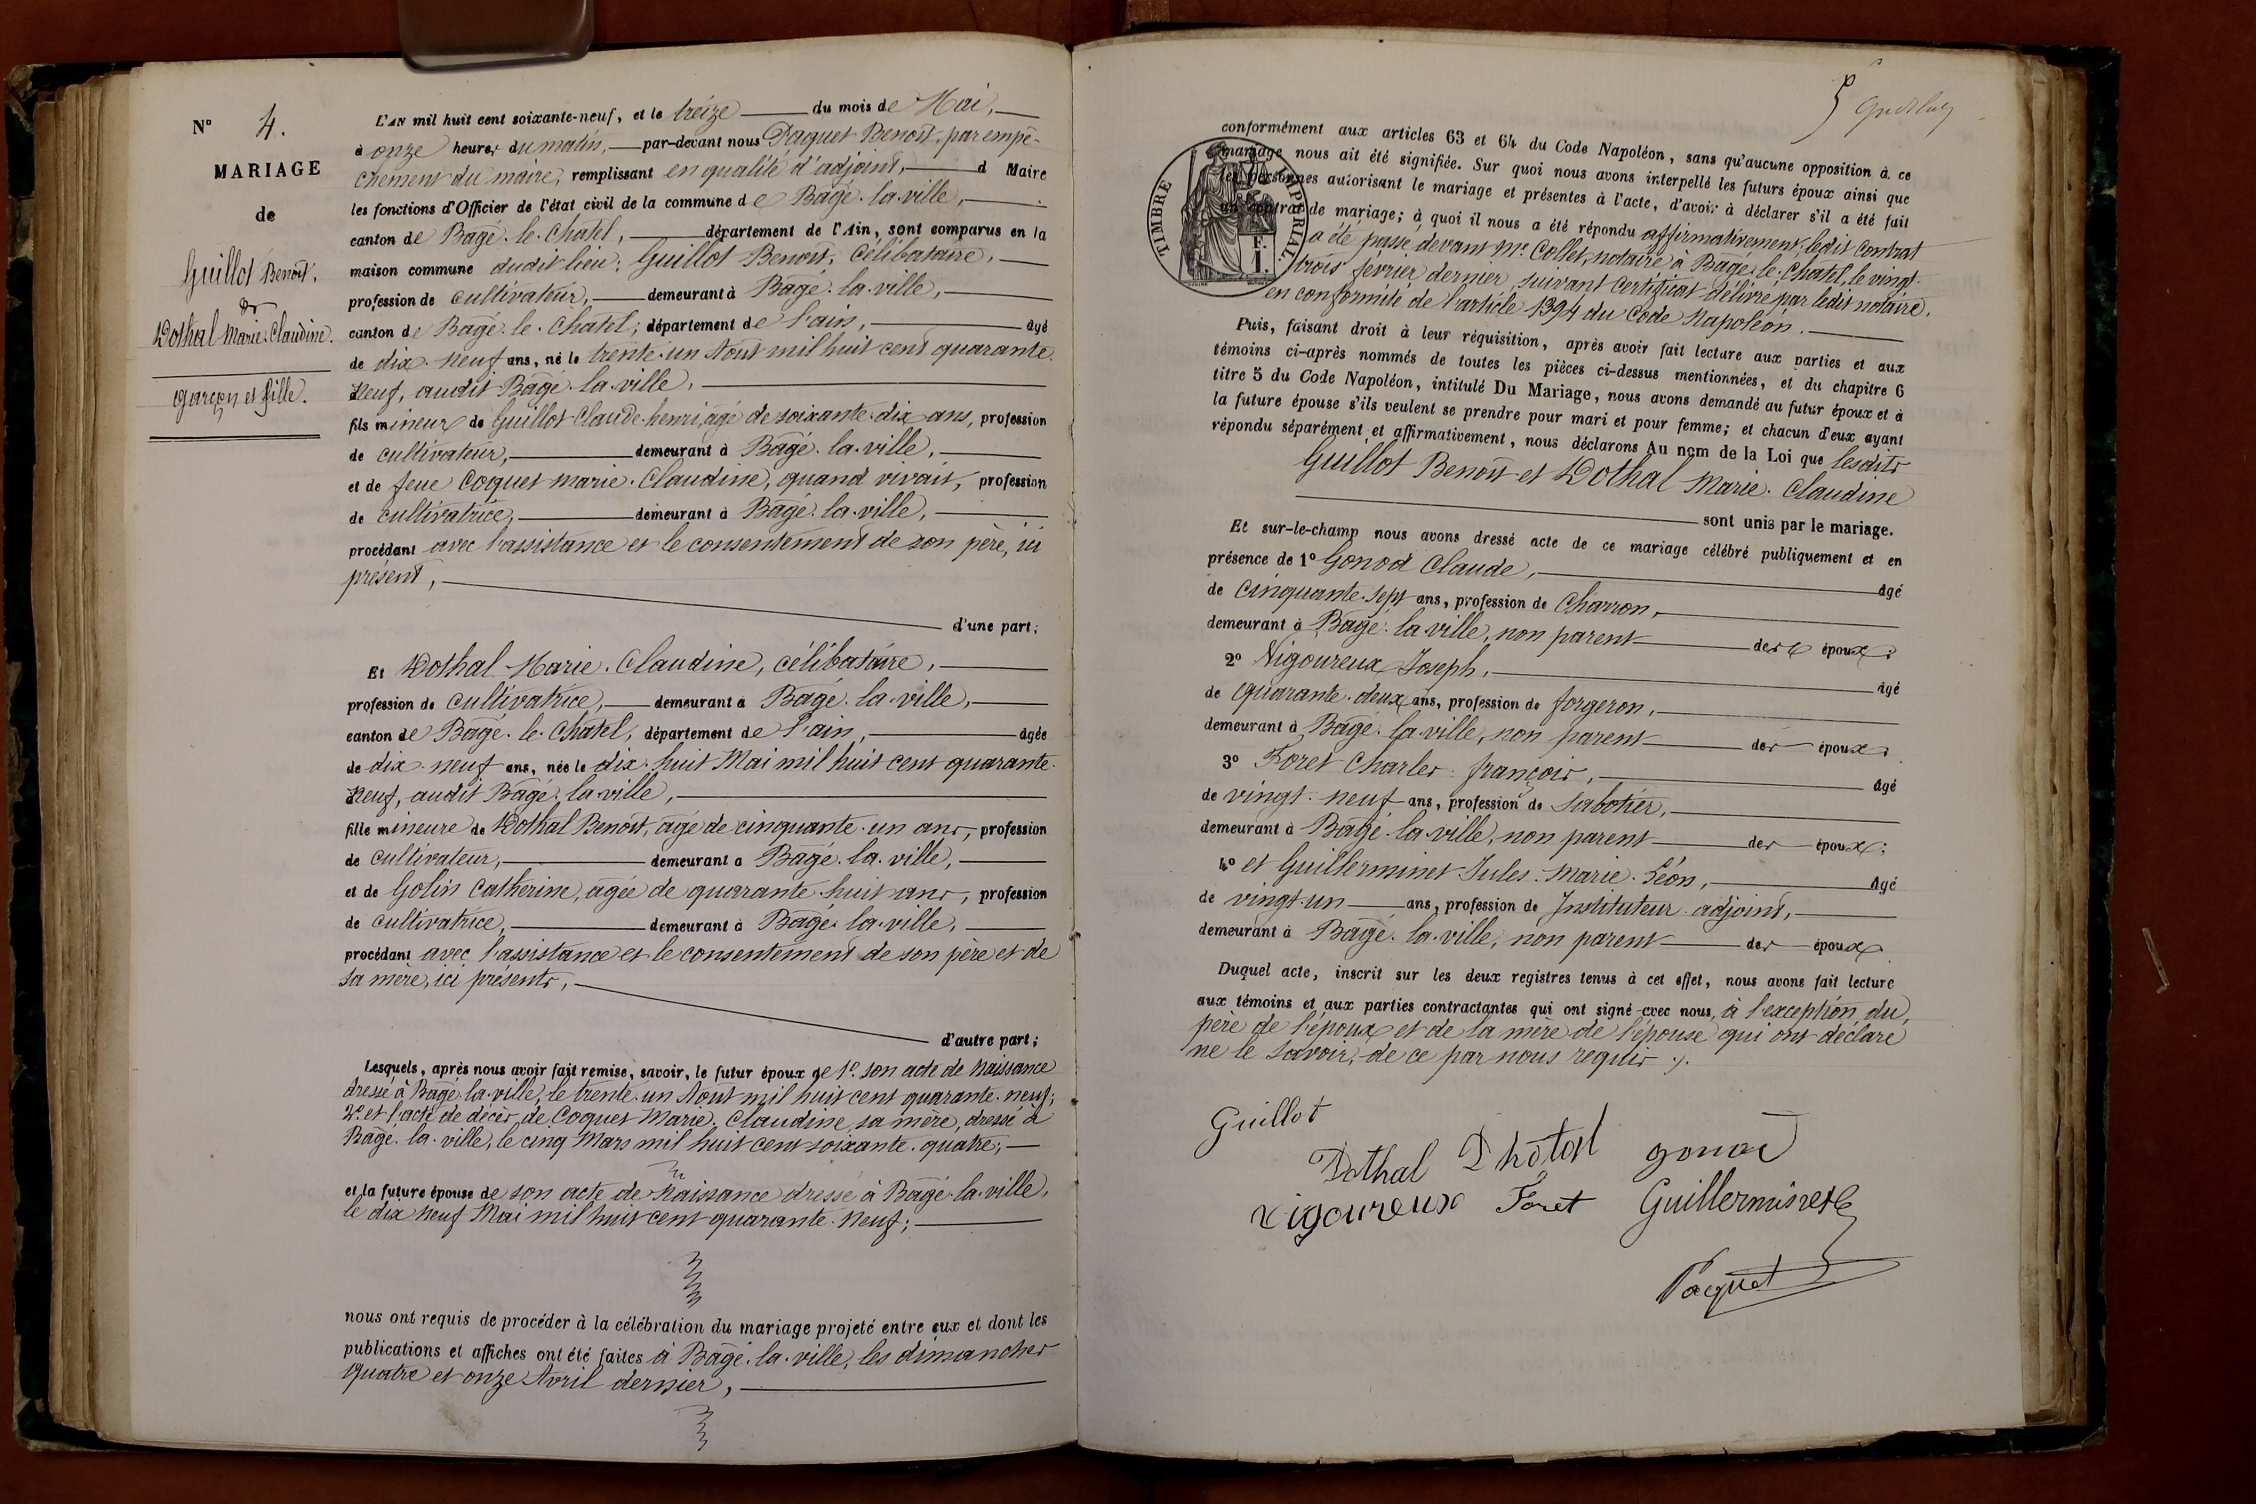 N° 4.
MARIAGE
de
Guillot Benoît.
&
Dothal Marie-Claudine.
garçon et fille.
L'AN mil huit cent soixante-neuf, et le treize du mois de Mai,
à onze heures du matin, par-devant nous Paquet Benoît, par empê-
chement du maire, remplissant en qualité d'adjoint, d Maire
les fonctions d'Officier de l'état civil de la commune de Bagé-la-ville,
canton de Bagé-le-Chatel, département de l'Ain, sont comparus en la
maison commune dudit lieu: Guillot Benoît, célibataire,
profession de cultivateur, demeurant à Bagé-la-ville,
canton de Bagé-le-Chatel, département de l'ain, âgé
de dix-neuf ans, né le trente-un Aout mil huit cent quarante-
neuf, audit Bagé-la-ville,
fils mineur de Guillot Claude-henri, âgé de soixante-dix ans, profession
de cultivateur, demeurant à Bagé-la-ville,
et de feue Coquet Marie-Claudine, quand vivait, profession
de cultivatrice, demeurant à Bagé-la-ville,
procédant avec l'assistance et le consentement de son père, ici
présent,
d'une part;
Et Dothal Marie-Claudine, célibataire,
profession de cultivatrice, demeurant à Bagé-la-ville,
canton de Bagé-le-Chatel, département de l'ain, âgée
de dix-neuf ans, née le dix-huit Mai mil huit cent quarante-
neuf, audit Bagé-la-ville,
fille mineure de Dothal Benoît, âgé de cinquante-un ans, profession
de cultivateur, demeurant à Bagé-la-ville,
et de Golin Catherine, âgée de quarante-huit ans, profession
de cultivatrice, demeurant à Bagé-la-ville,
procédant avec l'assistance et le consentement de son père et de
sa mère, ici présents,
d'autre part;
Lesquels, après nous avoir fait remise, savoir, le futur époux de 1° son acte de naissance
dressé à Bagé-la-ville, le trente-un Aout mil huit cent quarante-neuf;
2° et l'acte de décès de Coquet Marie-Claudine, sa mère, dressé à
Bagé-la-ville, le cinq Mars mil huit cent soixante-quatre;
et la future épouse de son acte de naissance dressé à Bagé-la-ville,
le dix neuf Mai mil huit cent quarante-neuf;
nous ont requis de procéder à la célébration du mariage projeté entre eux et dont les
publications et affiches ont été faites à Bagé-la-ville, les dimanches
quatre et onze Avril dernier,
5
conformément aux articles 63 et 64 du Code Napoléon, sans qu'aucune opposition à ce
mariage nous ait été signifiée. Sur quoi nous avons interpellé les futurs époux ainsi que
les personnes autorisant le mariage et présentes à l'acte, d'avoir à déclarer s'il a été fait
un contrat de mariage; à quoi il nous a été répondu affirmativement, ledit contrat
a été passé devant Me Collet, notaire à Bagé-le-Chatel, le vingt-
trois février dernier, suivant certificat délivré par ledit notaire,
en conformité de l'article 1394 du Code Napoléon.
TIMBRE IMPERIAL
E.
I.
Puis, faisant droit à leur réquisition, après avoir fait lecture aux parties et aux
témoins ci-après nommés de toutes les pièces ci-dessus mentionnées, et du chapitre 6
titre 5 du Code Napoléon, intitulé Du Mariage, nous avons demandé au futur époux et à
la future épouse s'ils veulent se prendre pour mari et pour femme; et chacun d'eux ayant
répondu séparément et affirmativement, nous déclarons Au nom de la Loi que lesdits
Guillot Benoît et Dothal Marie-Claudine
sont unis par le mariage.
Et sur-le-champ nous avons dressé acte de ce mariage célébré publiquement et en
présence de 1° Gonod Claude, âgé
de cinquante-sept ans, profession de charron,
demeurant à Bagé-la-ville, non parent des époux;
2° Vigoureux Joseph, âgé
de quarante-deux ans, profession de forgeron,
demeurant à Bagé-la-ville, non parent des époux;
3° Foret Charles-françois, âgé
de vingt-neuf ans, profession de sabotier,
demeurant à Bagé-la-ville, non parent des époux;
4° et Guillerminet Jules-Marie-Léon, âgé
de vingt-un ans, profession de Instituteur-adjoint,
demeurant à Bagé-la-ville, non parent des époux
Duquel acte, inscrit sur les deux registres tenus à cet effet, nous avons fait lecture
aux témoins et aux parties contractantes qui ont signé avec nous, à l'exception du
père de l'époux et de la mère de l'épouse qui ont déclaré
ne le savoir, de ce par nous requis ./.
Guillot
Dothal Dhotal gonod
vigoureux Foret Guillerminet
Paquet